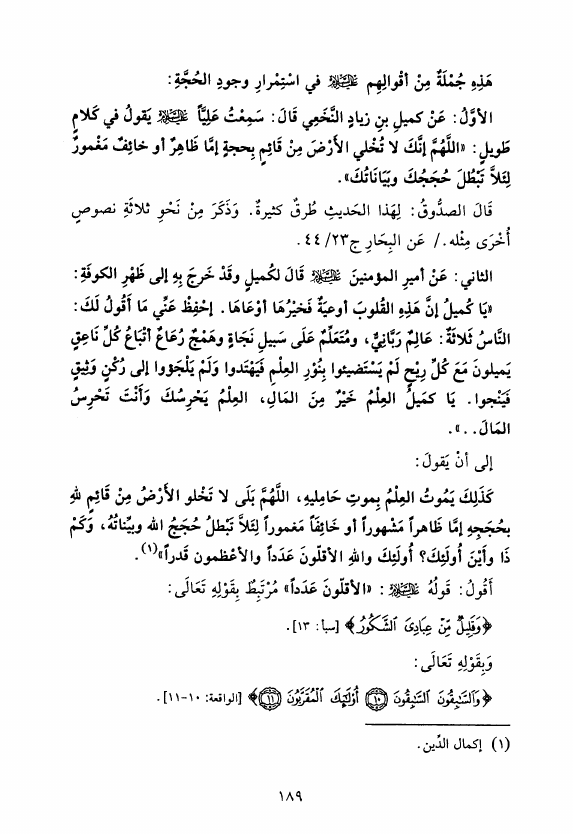 هَذِهِ جُمْلَةٌ مِنْ أقْوالِهِم عَلَيْهِمُ السَّلَام في اسْتِمْرارِ وجودِ الحُجَّةِ:
الأوَّلُ: عَنْ كميلِ بنِ زيادٍ النَّخَعِي قَالَ: سَمِعْتُ عَلِيَّاً عَلَيْهِ السَّلَام يَقولُ في كَلامٍ
طَويلٍ: «اللَّهُمَّ إنَّكَ لا تُخْلي الأَرْضَ مِنْ قَائِمٍ بِحجةٍ إمَّا ظَاهِرٌ أو خائِفٌ مَغْمورٌ
لِئَلاَّ تَبْطُلَ حُجَجُكَ وبَيَانَاتُكَ».
قَالَ الصدُّوقُ: لِهَذا الحَديثِ طُرقٌ كَثيرةٌ. وَذَكَرَ مِنْ نَحْوِ ثَلاثَةِ نصوصٍ
أُخْرَى مِثْله./ عَن البِحَارِ ج٢٣/ ٤٤.
الثاني: عَنْ أميرِ المؤمنينَ عَلَيْهِ السَّلَام قَالَ لكُميلٍ وقَدْ خَرجَ بِهِ إلى ظَهْرِ الكوفَةِ:
«يَا كُميلُ إنَّ هَذِهِ القُلوبَ أوعيَةٌ فَخيْرُهَا أوْعَاهَا. إحْفِظْ عَنِّي مَا أقُولُ لَكَ:
النَّاسُ ثَلاثَةٌ: عَالِمٌ رَبَّانِيٌّ، ومُتَعَلِّمٌ عَلَى سَبيلِ نَجَاةٍ وهَمْجٌ رُعَاعٌ أتْبَاعُ كُلِّ ناعِقٍ
يَميلونَ مَعَ كُلِّ رِيْحٍ لَمْ يَسْتَضيئوا بِنُوْرِ العِلْمِ فَيَهْتَدوا وَلَمْ يَلْجَؤوا إلى رُكْنٍ وَثِيْقٍ
فَيَنْجوا. يَا كميَلُ العِلْمُ خَيْرٌ مِنَ المَالِ، العِلْمُ يَحْرِسُكَ وَأنْتَ تَحْرِسُ
المَالَ..».
إلى أنْ يَقولَ:
كَذَلِكَ يَمُوتُ العِلْمُ بِموتِ حَامِليهِ، اللَّهُمَّ بَلَى لا تَخْلو الأرْضُ مِنْ قَائِمٍ للهِ
بِحُجَجِهِ إمَّا ظَاهراً مَشْهوراً أو خَائِفَاً مَغموراً لِئَلاَّ تَبْطلُ حُجَجُ الله وبيِّناتُهُ، وَكَمْ
ذَا وأَيْنَ أُولَئِكَ؟ أُولَئِكَ واللهِ الأقلّونَ عَدَداً والأعْظَمون قَدراً»(١).
أقُولُ: قَولُهُ عَلَيْهِ السَّلَام: «الأقلّونَ عَدَداً» مُرْتَبِطٌ بِقَوْلِهِ تَعَالَى:
﴿وَقَلِيلٌ مِّنْ عِبَادِيَ ٱلشَّكُورُ﴾ [سبأ: ١٣].
وَبِقَوْلِهِ تَعَالَى:
﴿وَٱلسَّٰبِقُونَ ٱلسَّٰبِقُونَ ١٠ أُوْلَٰٓئِكَ ٱلْمُقَرَّبُونَ ١١﴾ [الواقعة: ١٠-١١].
(١) إكمال الدِّين.
١٨٩